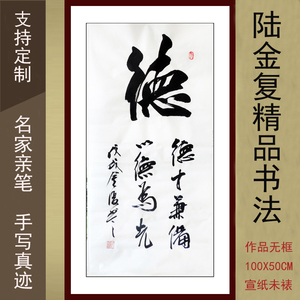 支持定制
名家亲笔
手写真迹
德
德才兼備
以德為先
陆金复精品书法
作品无框
100X50CM
宣纸未裱